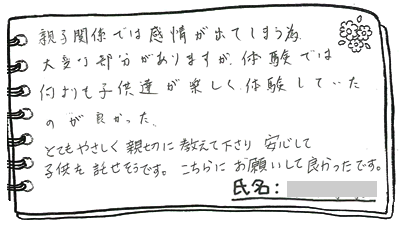 親子関係では感情が出てしまう為、
大変な部分がありますが、体験では
何よりも子供達が楽しく体験していた
のが良かった、
とてもやさしく親切に教えて下さり 安心して
子供を託せそうです。こちらにお願いして良かったです。
氏名：